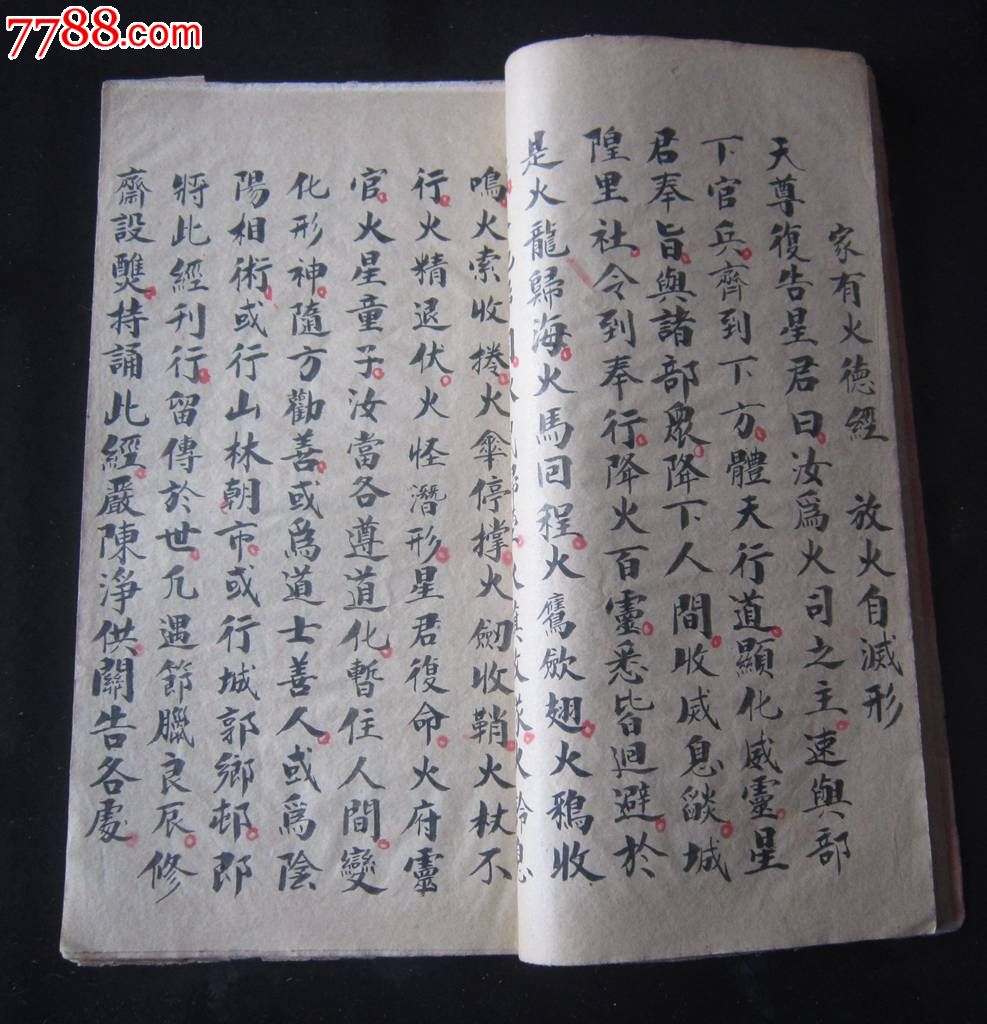 7788.com
家有火德經 放火自滅形
天尊復告星君曰汝爲火司之主速與部
下官兵齊到下方體天行道顯化威靈星
君奉旨與諸部衆降下人間收威息燄城
隍里社令到奉行降火百靈悉皆迴避於
是火龍歸海火馬回程火鴈歛翅火鴉收
鳴火索收捲火傘停撑火劒收鞘火杖不
行火精退伏火怪潛形星君復命火府靈
官火星童子汝當各遵道化暫住人間變
化形神隨方勸善或爲道士善人或爲陰
陽相術或行山林朝市或行城郭鄉邨即
將此經刊行留傳於世凢遇節臘良辰修
齋設醮持誦此經嚴陳淨供關告各處